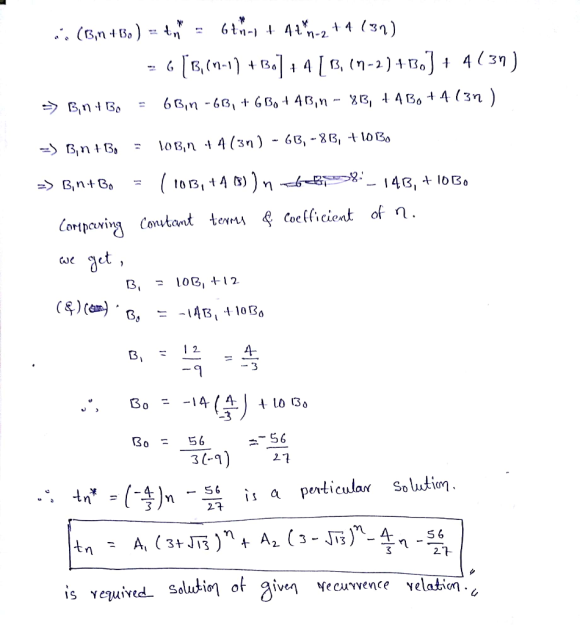 ∴ (B₁n + B₀) = tₙ* = 6t*ₙ₋₁ + 4t*ₙ₋₂ + 4(3n)
= 6[B₁(n-1) + B₀] + 4[B₁(n-2) + B₀] + 4(3n)
⇒ B₁n + B₀ = 6B₁n - 6B₁ + 6B₀ + 4B₁n - 8B₁ + 4B₀ + 4(3n)
⇒ B₁n + B₀ = 10B₁n + 4(3n) - 6B₁ - 8B₁ + 10B₀
⇒ B₁n + B₀ = (10B₁ + 4(3))n - 14B₁ + 10B₀
Comparing constant terms & Coefficient of n.
we get,
B₁ = 10B₁ + 12
(&) B₀ = -14B₁ + 10B₀
B₁ = 12/-9 = 4/-3
∴, B₀ = -14(4/-3) + 10B₀
B₀ = 56/3(-9) = -56/27
∴ tn* = (-4/3)n - 56/27 is a perticular solution.
tn = A₁(3+√13)ⁿ + A₂(3-√13)ⁿ - 4/3 n - 56/27
is required solution of given recurrence relation.